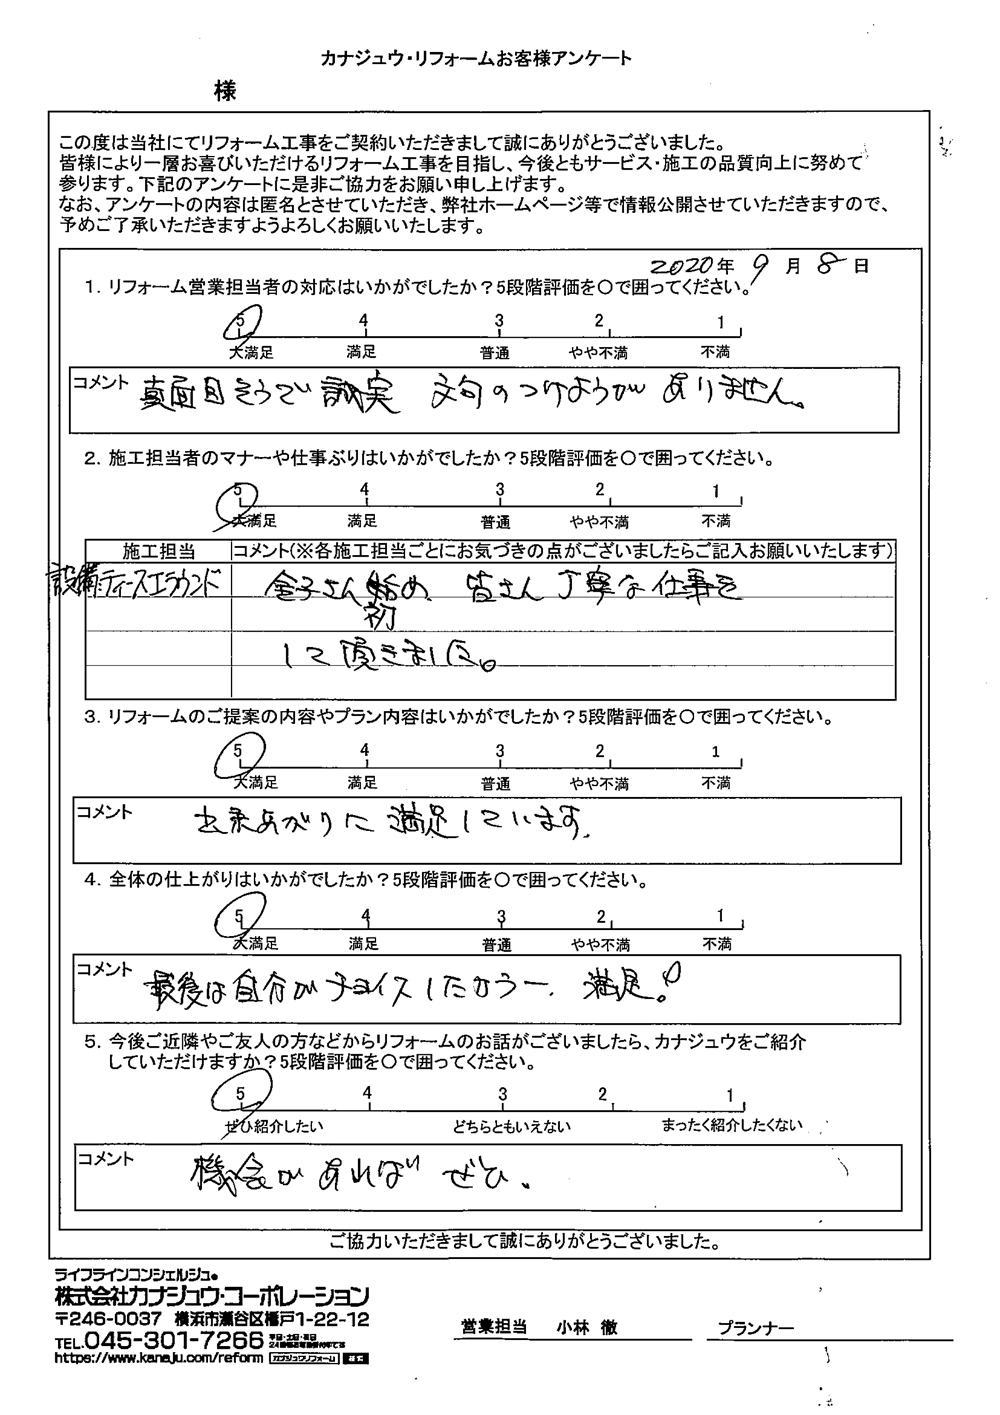 カナジュウ・リフォームお客様アンケート
様
この度は当社にてリフォーム工事をご契約いただきまして誠にありがとうございました。
皆様により一層お喜びいただけるリフォーム工事を目指し、今後ともサービス・施工の品質向上に努めて
参ります。下記のアンケートに是非ご協力をお願い申し上げます。
なお、アンケートの内容は匿名とさせていただき、弊社ホームページ等で情報公開させていただきますので、
予めご了承いただきますようよろしくお願いいたします。
2020年 9 月 8 日
1. リフォーム営業担当者の対応はいかがでしたか？5段階評価を〇で囲ってください。
5 4 3 2 1
大満足 満足 普通 やや不満 不満
コメント 真面目そうで誠実 文句のつけようがありません。
2. 施工担当者のマナーや仕事ぶりはいかがでしたか？5段階評価を〇で囲ってください。
5 4 3 2 1
大満足 満足 普通 やや不満 不満
施工担当 コメント(※各施工担当ごとにお気づきの点がございましたらご記入お願いいたします)
設備:ティースエラウンド 金子さん始め、皆さん丁寧な仕事を
初
して頂きました。
3. リフォームのご提案の内容やプラン内容はいかがでしたか？5段階評価を〇で囲ってください。
5 4 3 2 1
大満足 満足 普通 やや不満 不満
コメント 出来あがりに満足しています。
4. 全体の仕上がりはいかがでしたか？5段階評価を〇で囲ってください。
5 4 3 2 1
大満足 満足 普通 やや不満 不満
コメント 最後は自分がチョイスしたから一、満足!
5. 今後ご近隣やご友人の方などからリフォームのお話がございましたら、カナジュウをご紹介
していただけますか？5段階評価を〇で囲ってください。
5 4 3 2 1
ぜひ紹介したい どちらともいえない まったく紹介したくない
コメント 機会があればぜひ。
ご協力いただきまして誠にありがとうございました。
ライフラインコンシェルジュ®
株式会社カナジュウ・コーポレーション
〒246-0037 横浜市瀬谷区橋戸1-22-12
TEL.045-301-7266
https://www.kanaju.com/reform カナジュウリフォーム 検索
営業担当 小林 徹 プランナー